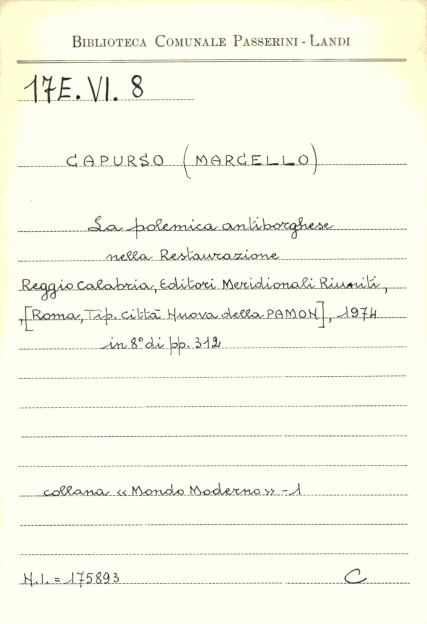 BIBLIOTECA COMUNALE PASSERINI - LANDI
17E. VI. 8
CAPURSO (MARCELLO)
La polemica antiborghese
nella Restaurazione
Reggio Calabria, Editori Meridionali Riuniti,
,[Roma, Tip. Città Nuova della PAMOM], 1974
in 8° di pp. 312
collana « Mondo Moderno» - 1
N.I. = 175893 C